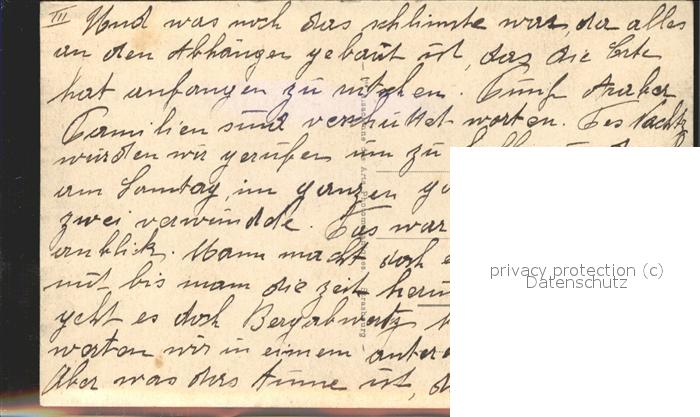 III
Und was noch das schlimste war, da alles
an den Abhängen gebaut ist, das die Erte
hat anfangen zu rutschen. Fünf Araber
Familien sind verschüttet worten. Des Nachts
würden wir gerufen um zu
am Samtag, im ganzen
zwei verwundde. Das war
anblick. Mann macht doch
mit, bis man die zeit herum
geht es doch Bergabwertz
worten wir in einem
Aber was das dume ist,
privacy protection (c)
Datenschutz